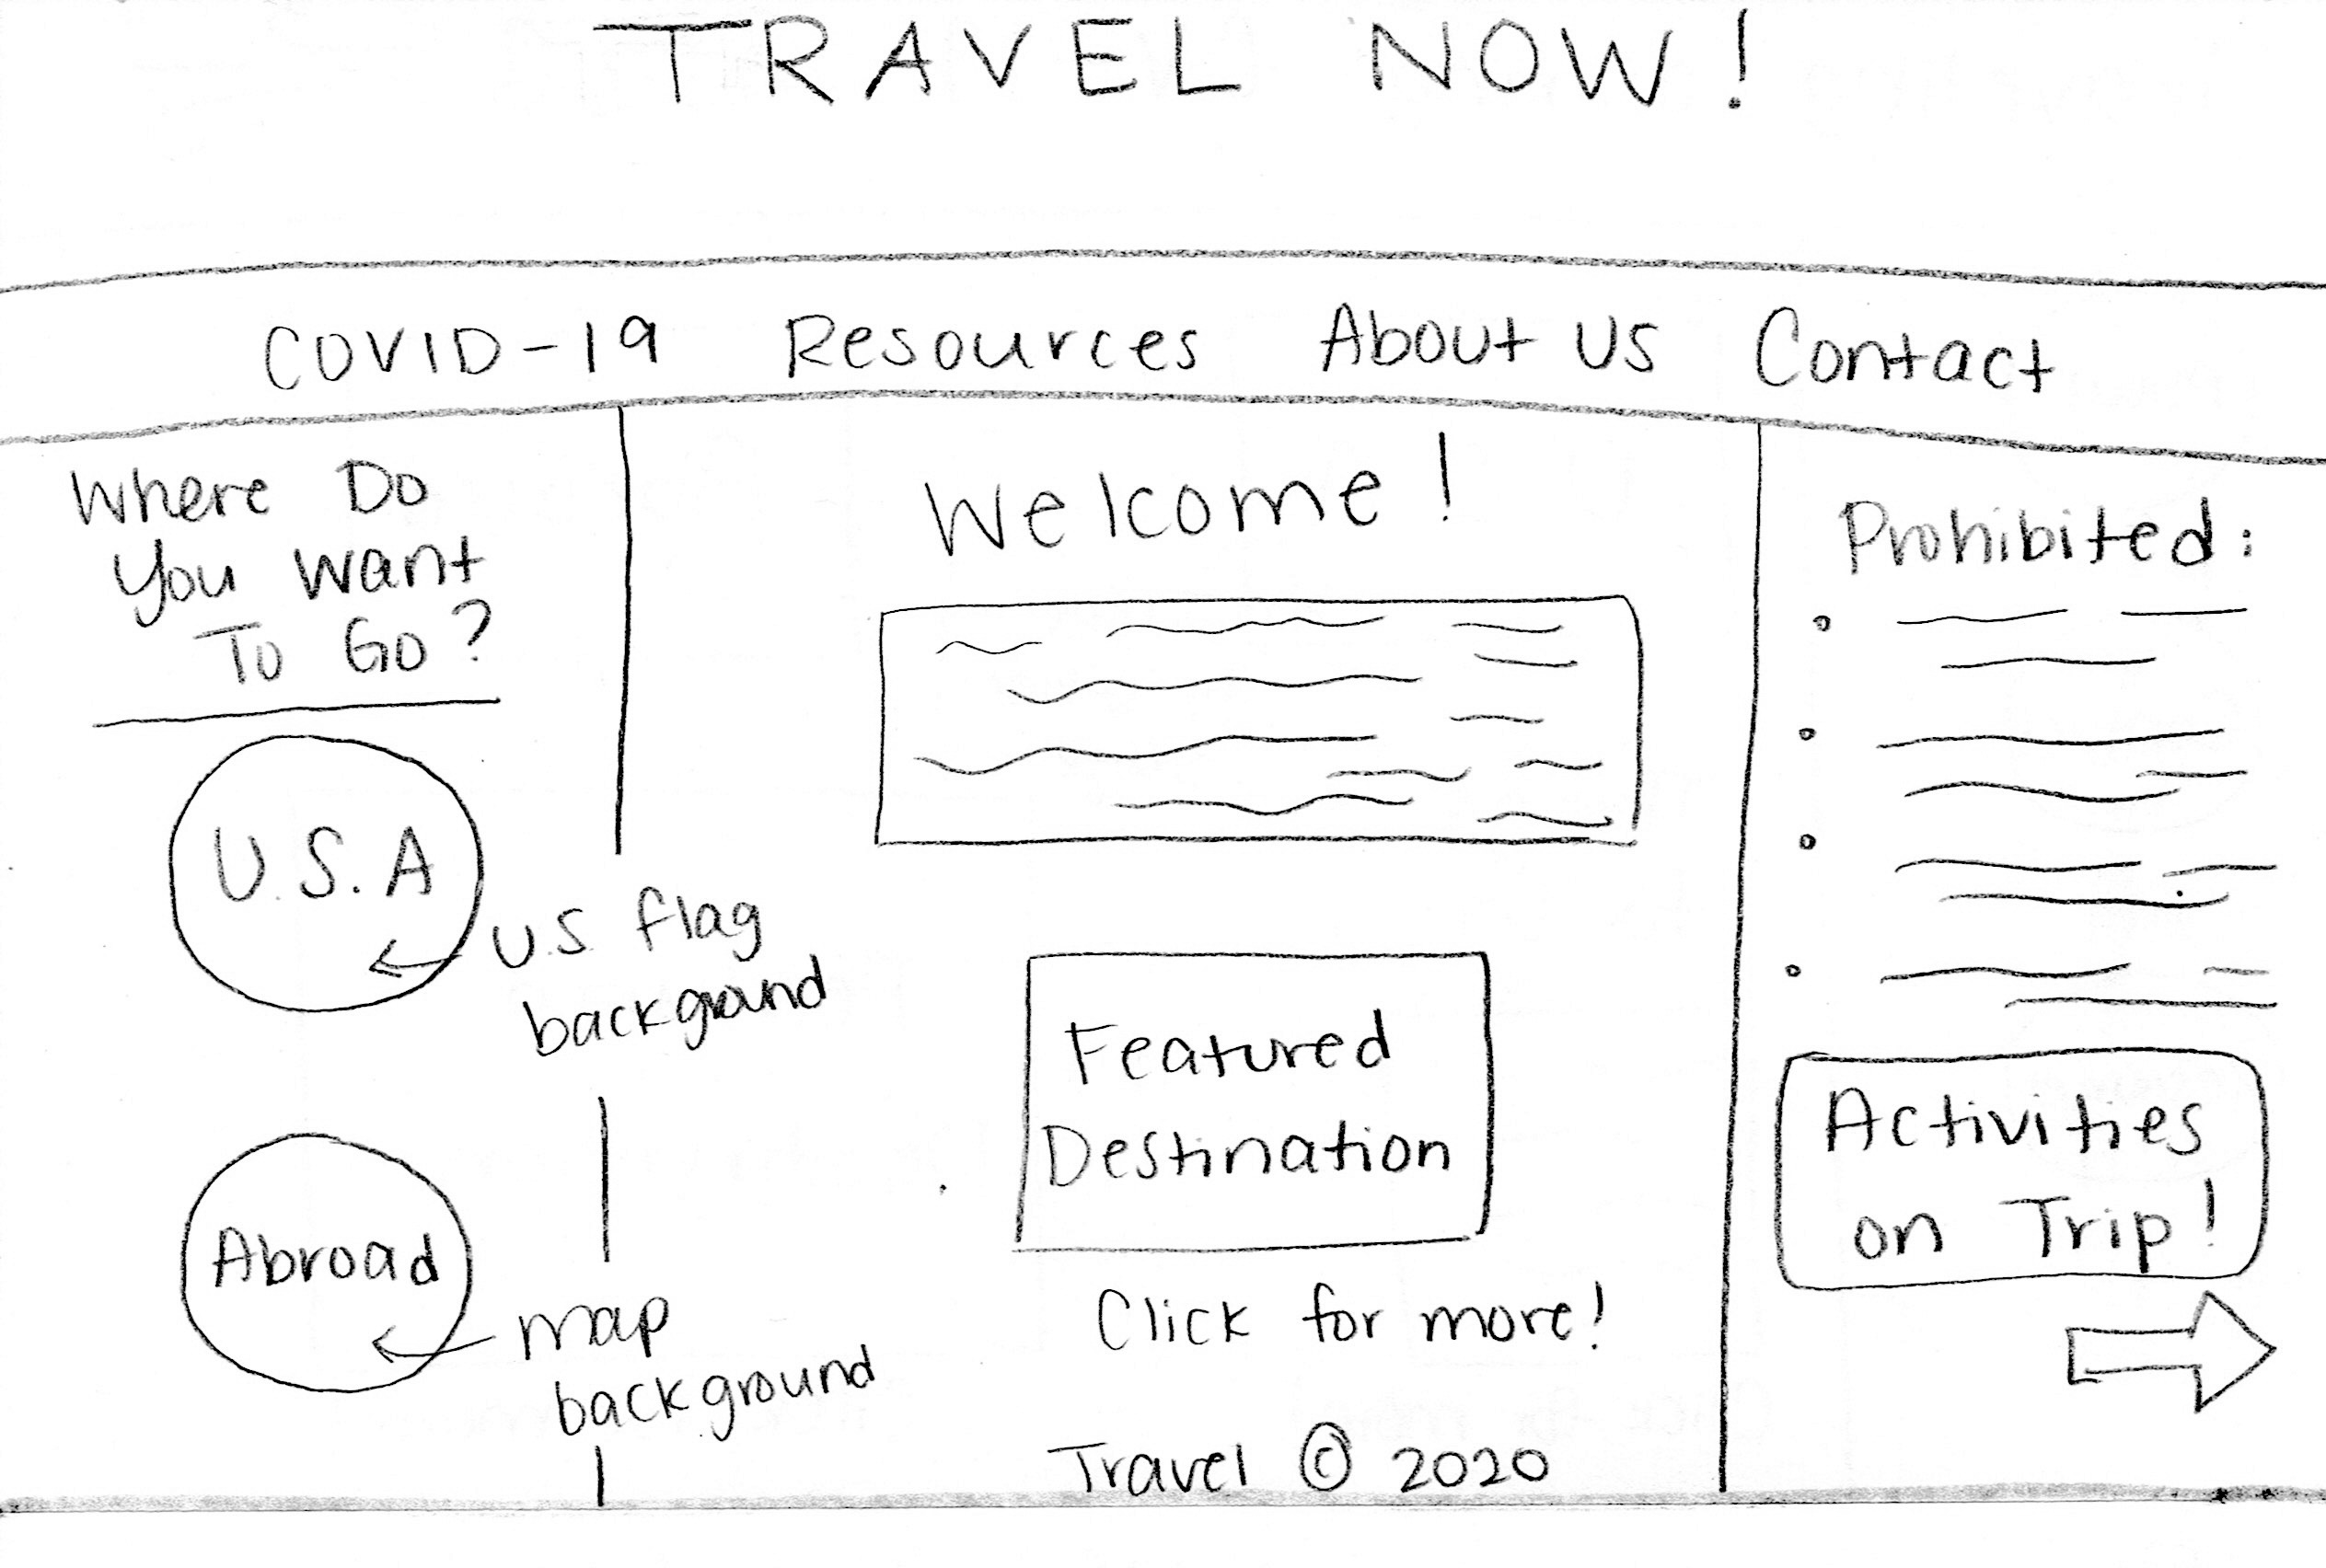 TRAVEL NOW!
COVID-19 Resources About Us Contact
Where Do
You Want
To Go?
U.S.A
U.S. flag
background
Abroad
map
background
Welcome!
Featured
Destination
Click for more!
Travel © 2020
Prohibited:
Activities
on Trip!